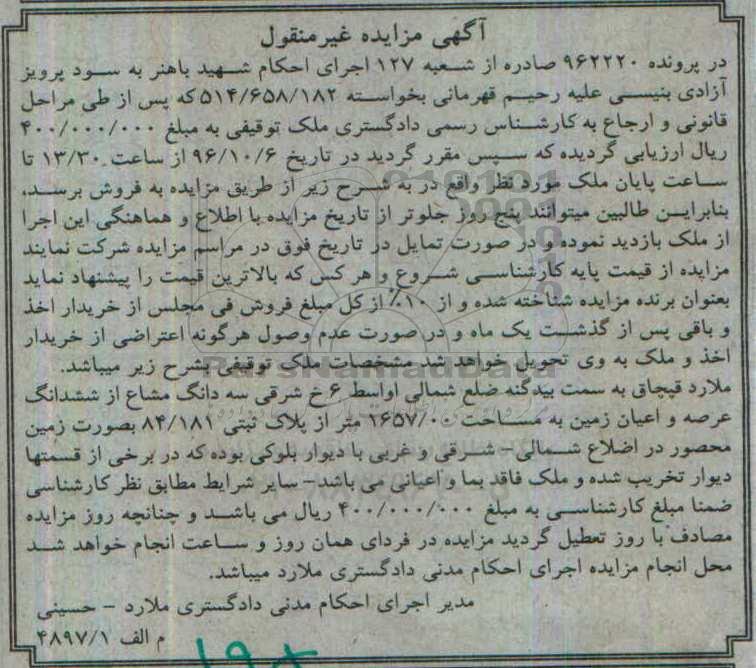 آگهی مزایده غیرمنقول
در پرونده ۹۶۲۲۲۰ صادره از شعبه ۱۲۷ اجرای احکام شهید باهنر به سود پرویز
آزادی بنیسی علیه رحیم قهرمانی بخواسته ۵۱۴/۶۵۸/۱۸۲ که پس از طی مراحل
قانونی و ارجاع به کارشناس رسمی دادگستری ملک توقیفی به مبلغ ۴۰۰/۰۰۰/۰۰۰
ریال ارزیابی گردیده که سپس مقرر گردید در تاریخ ۹۶/۱۰/۶ از ساعت ۱۳/۳۰ تا
ساعت پایان ملک مورد نظر واقع در به شرح زیر از طریق مزایده به فروش برسد،
بنابراین طالبین میتوانند پنج روز جلوتر از تاریخ مزایده با اطلاع و هماهنگی این اجرا
از ملک بازدید نموده و در صورت تمایل در تاریخ فوق در مراسم مزایده شرکت نمایند
مزایده از قیمت پایه کارشناسی شروع و هر کس که بالاترین قیمت را پیشنهاد نماید
بعنوان برنده مزایده شناخته شده و از ۱۰٪ از کل مبلغ فروش فی مجلس از خریدار اخذ
و باقی پس از گذشت یک ماه و در صورت عدم وصول هرگونه اعتراضی از خریدار
اخذ و ملک به وی تحویل خواهد شد مشخصات ملک توقیفی بشرح زیر میباشد.
ملارد قپچاق به سمت بیدگنه ضلع شمالی اواسط ۶ خ شرقی سه دانگ مشاع از ششدانگ
عرصه و اعیان زمین به مساحت ۱۶۵۷/۰۰ متر از پلاک ثبتی ۸۴/۱۸۱ بصورت زمین
محصور در اضلاع شمالی- شرقی و غربی با دیوار بلوکی بوده که در برخی از قسمتها
دیوار تخریب شده و ملک فاقد بما و اعیانی می باشد- سایر شرایط مطابق نظر کارشناسی
ضمنا مبلغ کارشناسی به مبلغ ۴۰۰/۰۰۰/۰۰۰ ریال می باشد و چنانچه روز مزایده
مصادف با روز تعطیل گردید مزایده در فردای همان روز و ساعت انجام خواهد شد
محل انجام مزایده اجرای احکام مدنی دادگستری ملارد میباشد.
مدیر اجرای احکام مدنی دادگستری ملارد - حسینی
م الف ۴۸۹۷/۱